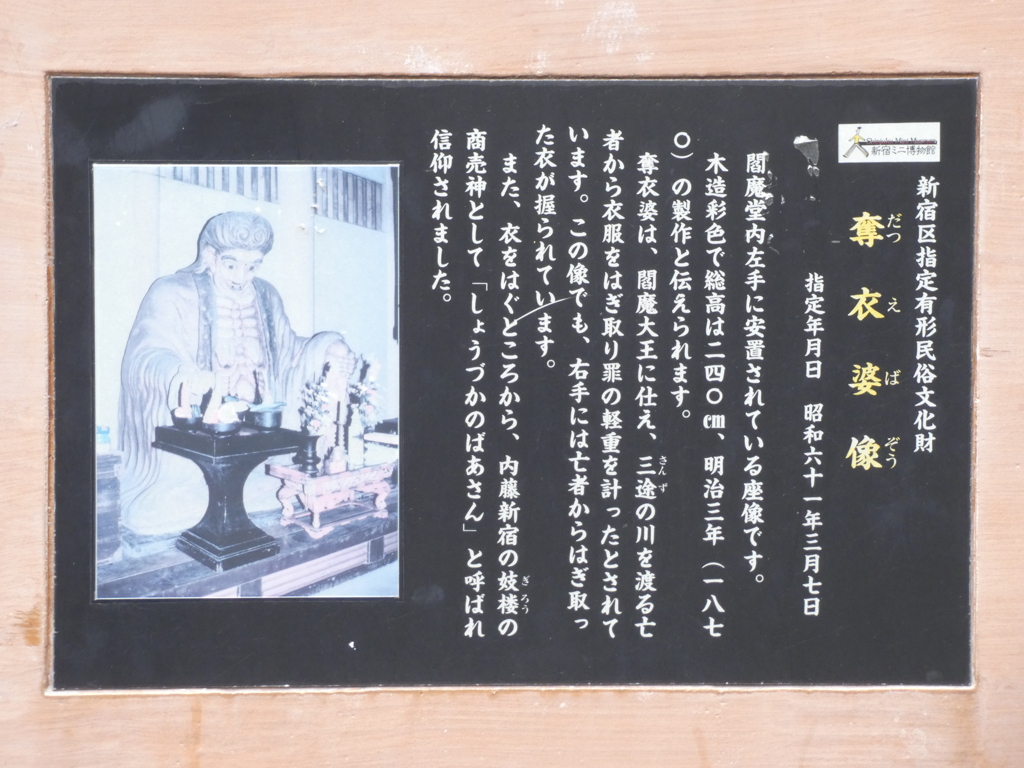 新宿ミニ博物館
新宿区指定有形民俗文化財
奪衣婆像
だつえばぞう
指定年月日 昭和六十一年三月七日
閻魔堂内左手に安置されている座像です。
木造彩色で総高は二四〇cm、明治三年（一八七
〇）の製作と伝えられます。
奪衣婆は、閻魔大王に仕え、三途の川を渡る亡
さんず
者から衣服をはぎ取り罪の軽重を計ったとされて
います。この像でも、右手には亡者からはぎ取っ
た衣が握られています。
また、衣をはぐところから、内藤新宿の妓楼の
ぎろう
商売神として「しょうづかのばあさん」と呼ばれ
信仰されました。